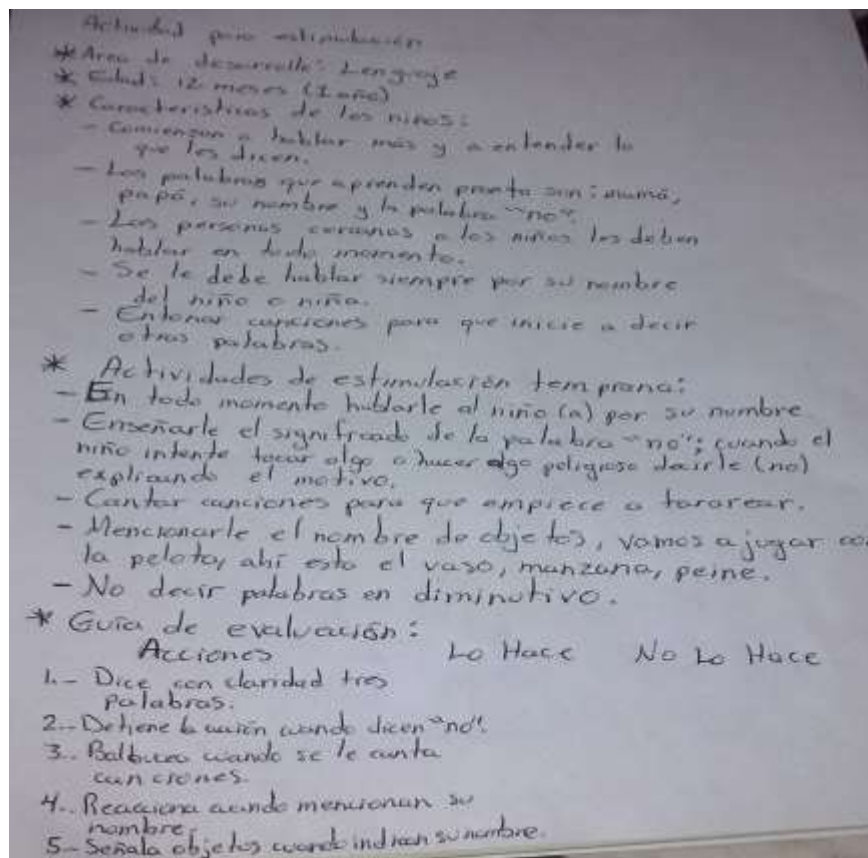 Actividad para estimulación
* Area de desarrollo: Lenguaje
* Edad: 12 meses (1 año)
* Caracteristicas de los niños:
- Comienzan a hablar más y a entender lo
que les dicen.
- Las palabras que aprenden pronto son: mamá,
papá, su nombre y la palabra "no".
- Las personas cercanas a los niños les deben
hablar en todo momento.
- Se le debe hablar siempre por su nombre
del niño o niña.
- Entonar canciones para que inicie a decir
otras palabras.
* Actividades de estimulación temprana:
- En todo momento hablarle al niño (a) por su nombre
- Enseñarle el significado de la palabra "no"; cuando el
niño intente tocar algo o hacer algo peligroso decirle (no)
explicando el motivo.
- Cantar canciones para que empiece a tararear.
- Mencionarle el nombre de objetos, vamos a jugar con
la pelota, ahí esta el vaso, manzana, peine.
- No decir palabras en diminutivo.
* Guía de evaluación:
Acciones Lo Hace No Lo Hace
1.- Dice con claridad tres
palabras.
2.- Detiene la acción cuando dicen "no".
3.- Balbucea cuando se le canta
canciones.
4.- Reacciona cuando mencionan su
nombre.
5.- Señala objetos cuando indican su nombre.